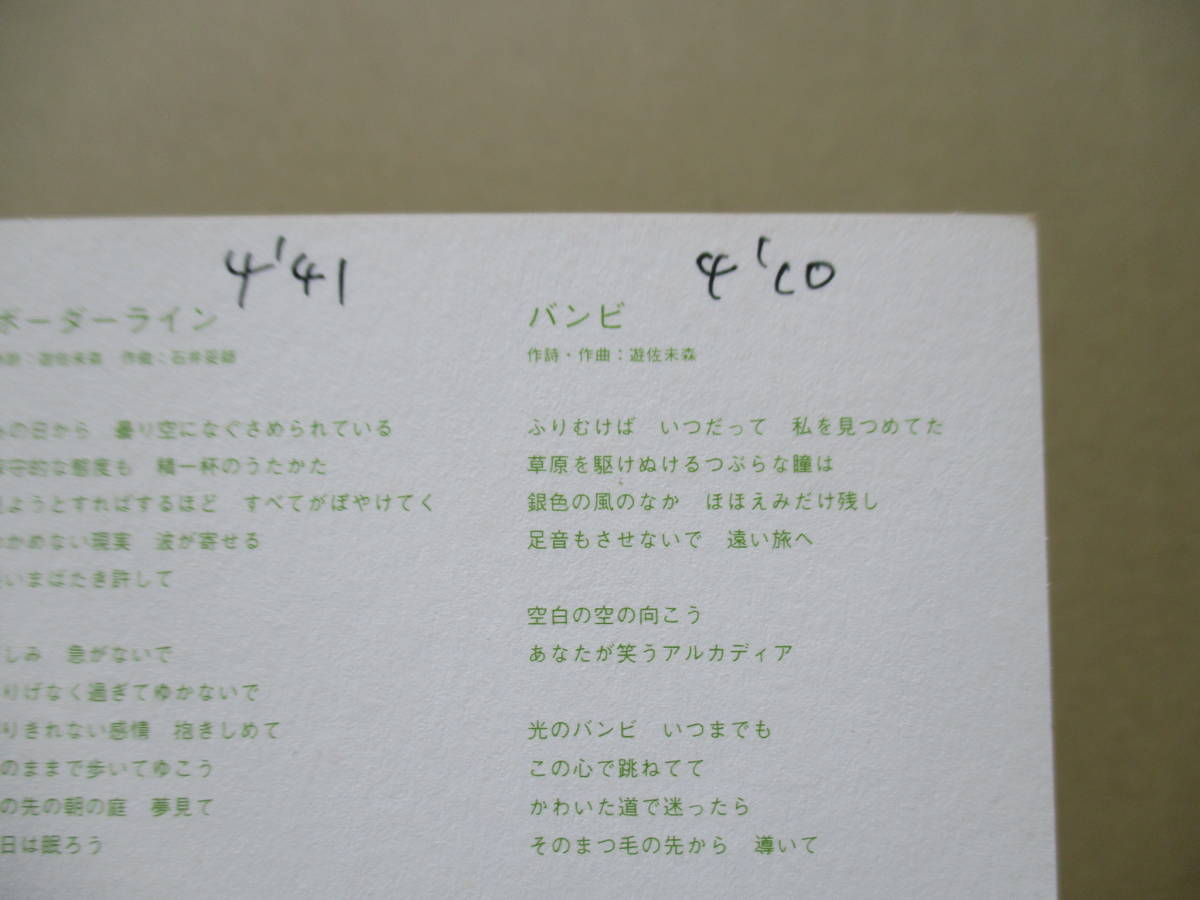 4'41
ボーダーライン
遊佐未森 作曲：石井
の日から 曇り空になぐさめられている
守的な態度も 精一杯のうたかた
ようとすればするほど すべてがぼやけてく
かめない現実 波が寄せる
いまばたき許して
しみ 急がないで
りげなく過ぎてゆかないで
りきれない感情 抱きしめて
のままで歩いてゆこう
の先の朝の庭 夢見て
日は眠ろう
4'10
バンビ
作詩・作曲：遊佐未森
ふりむけば いつだって 私を見つめてた
草原を駆けぬけるつぶらな瞳は
銀色の風のなか ほほえみだけ残し
足音もさせないで 遠い旅へ
空白の空の向こう
あなたが笑うアルカディア
光のバンビ いつまでも
この心で跳ねてて
かわいた道で迷ったら
そのまつ毛の先から 導いて